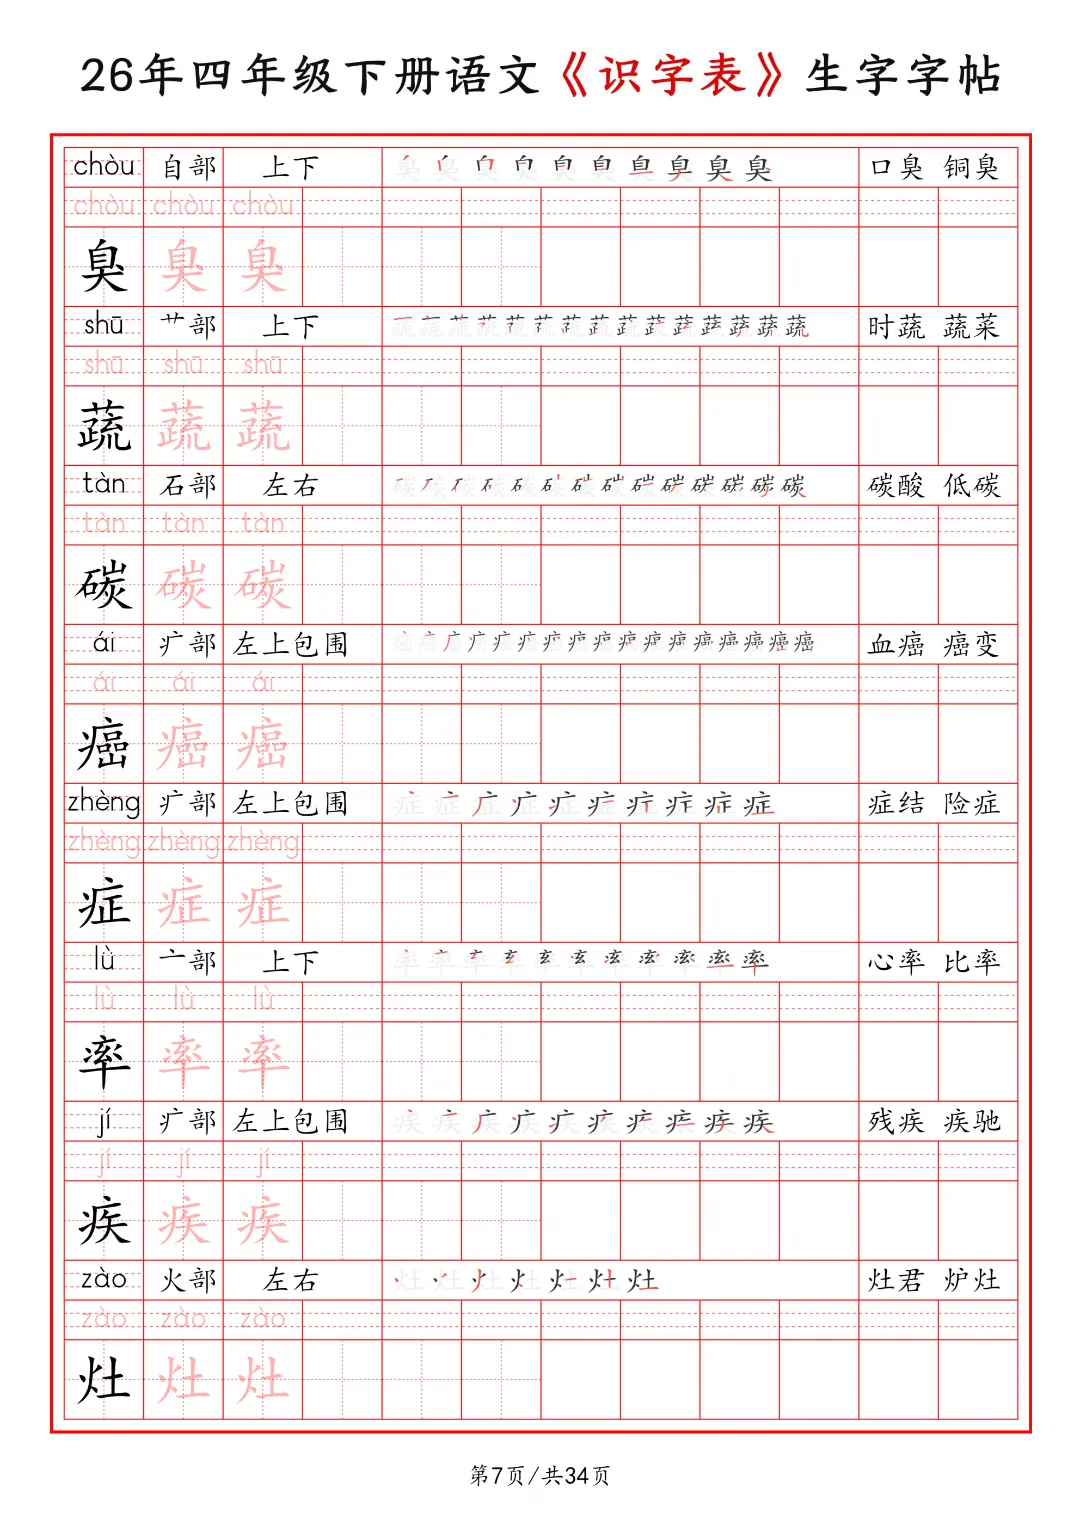 26年四年级下册语文《识字表》生字字帖
chòu 自部 上下 臭臭臭臭臭臭臭臭臭臭 口臭 铜臭
chòu chòu chòu
臭 臭 臭
shū 艹部 上下 蔬蔬蔬蔬蔬蔬蔬蔬蔬蔬蔬蔬蔬蔬蔬 时蔬 蔬菜
shū shū shū
蔬 蔬 蔬
tàn 石部 左右 碳碳碳碳碳碳碳碳碳碳碳碳碳碳 碳酸 低碳
tàn tàn tàn
碳 碳 碳
ái 疒部 左上包围 癌癌癌癌癌癌癌癌癌癌癌癌癌癌癌癌癌 血癌 癌变
ái ái ái
癌 癌 癌
zhèng 疒部 左上包围 症症症症症症症症症症 症结 险症
zhèng zhèng zhèng
症 症 症
lǜ 亠部 上下 率率率率率率率率率率率 心率 比率
lǜ lǜ lǜ
率 率 率
jí 疒部 左上包围 疾疾疾疾疾疾疾疾疾疾 残疾 疾驰
jí jí jí
疾 疾 疾
zào 火部 左右 灶灶灶灶灶灶灶 灶君 炉灶
zào zào zào
灶 灶 灶
第7页/共34页